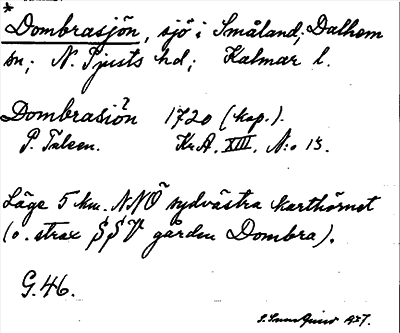 *
Dombrasjön, sjö i Småland; Dalhem
sn; N. Tjusts hd; Kalmar l.
Dombrasiön? 1720 (kop.).
Kr.A. XIII. N:o 13.
Läge 5 km. NNÖ sydvästra karthörnet
(o. strax SSV gården Dombra).
G.46.